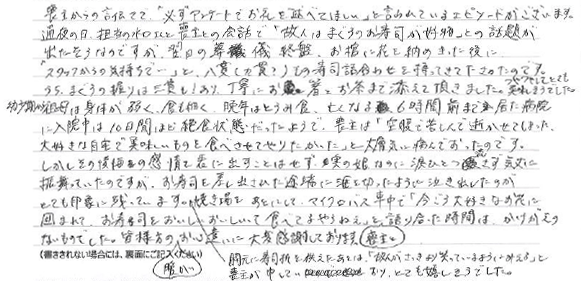 喪主からの言伝てで"必ずアンケートでお礼を述べてほしい"と言われているエピソードがございます。
通夜の日、担当の水口さんと喪主との会話で「故人はまぐろのお寿司が好物」との話題が
出たそうなのですが、翌日の葬儀終盤、お棺に花を納めきった後に
「スタッフからの気持ちで…」と、八貫(九貫?)もの寿司詰合わせを持ってきて下さったのです。
うち、まぐろの握りは三貫もあり、丁寧にお箸とお茶まで添えて頂きました。とっても
美味しそうでした
祖母は身体が弱く、食も細く、晩年はとろみ食、亡くなる6時間前まで居た病院
に入院中は10日間ほど絶食状態だったようで、喪主は「空腹で苦しんで逝かせてしまった、
大好きな自宅で美味しいものを食べさせてやりたかった」と大層気に病んでおったのです。
しかしその後悔の感情を表に出すことはせず、実の娘なのに涙ひとつ見せず気丈に
振舞っていたのですが、お寿司を差し出された途端に泪を切ったように泣き出したのが
とても印象に残っています。焼き場をあとにして、マイクロバス車中で「今ごろ大好きなお花に
囲まれて、お寿司をおいしいおいしいて食べてはるやろねぇ」と語り合った時間は、かけがえの
ないものでした。皆様方のお心遣いに大変感謝しております(喪主)。
(書ききれない場合には、裏面にご記入ください)
暖かい
胸元に寿司折を供えたあとは、「故人がさっきより笑っているように見える」と
喪主が申しており、とても嬉しそうでした。